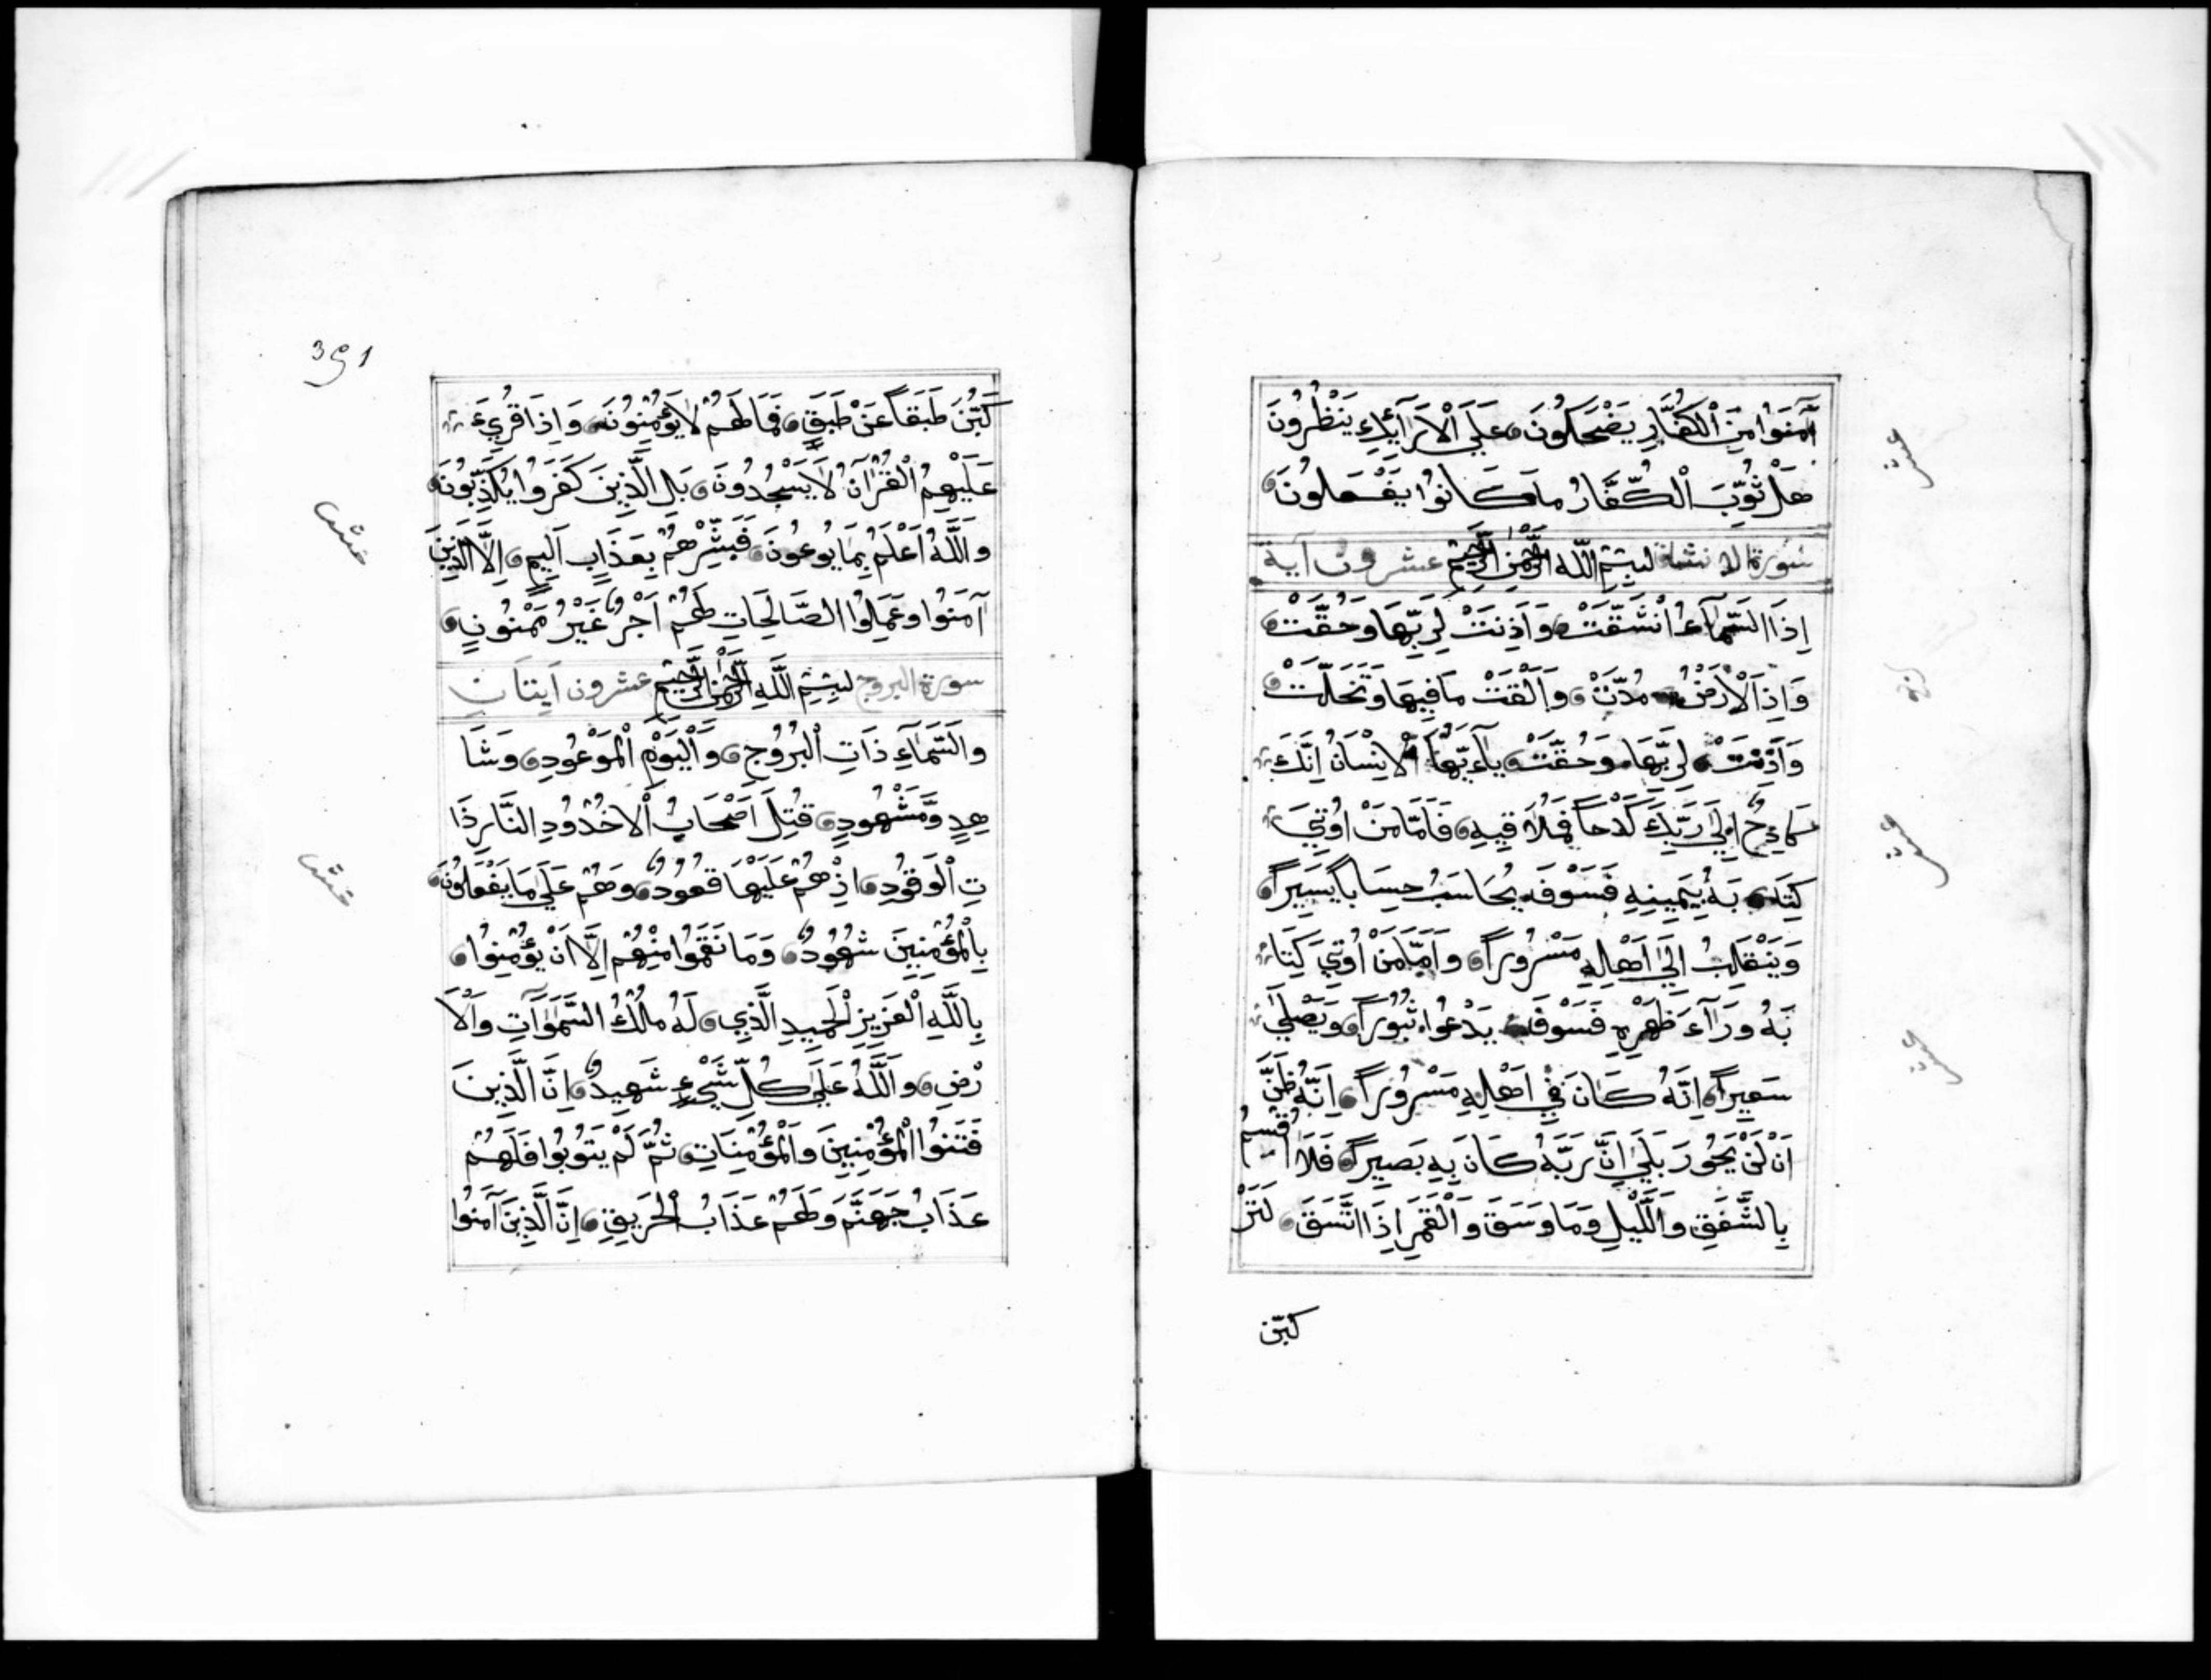 آمَنَوُا مِنَ اَلْكُفَّارِ يَضْحَكُونَ عَلَىَ اَلْاَرَآئِكِ يَنْظُرُونَ
هَلْ ثُوِّبَ اَلْكُفَّارُ مَا كَانوُا يَفْعَلونَ
سُورة الانشقا لبِسْمِ اللّه الرَّحْمٰنِ الرَّحِيمِ عشرون آية
اِذَا السَّمَآءُ اْنْشَقَّتْ وَاَذِنَتْ لِرَبِّهَا وَحُقَّتْ
وَاِذَ اَلْاَرْضُ مُدَّتْ وَاَلْقَتْ مَا فِيهَا وَتَخَلَّتْ
وَاَذِنَتْ لِرَبِّهَا وَحُقَّتْ يٰآءَيُّهَا اَلْاِنْسَانُ اِنَّكَ
كَادِحٌ اِلَىٰ رَبِّكَ كَدْحاً فَمُلَاقِيهِ فَاَمَّا مَنْ اُوتِيَ
كِتَـ بَهُ بِيَمِينِهِ فَسَوْفَ يُحَاسَبُ حِسَاباً يَسِيراً
وَيَنْقَلِبُ اِلَىٰ اَهْلِهِ مَسْرُوراً وَاَمَّا مَنْ اُوتِيَ كِتَا
بَهُ وَرَآءَ ظَهْرِهِ فَسَوْفَ يَدْعُوا ثُبُوراً وَيَصْلَىٰ
سَعِيراً اِنَّهُ كَانَ فِي اَهْلِهِ مَسْرُوراً اِنَّهُ ظَنَّ
اَنْ لَنْ يَحُورَ بَلَىٰ اِنَّ رَبَّهُ كَانَ بِهِ بَصِيراً فَلَا اُقْسِمُ
بِالشَّفَقِ وَاللَّيْلِ وَمَا وَسَقَ وَالْقَمَرِ اِذَا اتَّسَقَ لَتَرْ
كبّن
391
كَبُنَّ طَبَقاً عَنْ طَبَقٍ فَمَا لَهُمْ لَا يُؤْمِنُونَ وَاِذَا قُرِيءَ
عَلَيْهِمُ الْقُرْآنُ لَا يَسْجُدُونَ بَلِ الَّذِينَ كَفَرَوُا يُكَذِّبُونَ
وَاَللَّهُ اَعْلَمُ بِمَا يُوعُونَ فَبَشِّرْهُمْ بِعَذَابٍ اَلِيمٍ اِلَّا الَّذِينَ
آمَنُوا وَعَمِلُوا الصَّالِحَاتِ لَهُمْ اَجْرٌ غَيْرُ مَمْنُونٍ
سورة البروج لبِسْمِ اللَّهِ الرَّحْمٰنِ الرَّحِيمِ عشرون ايتان
وَالسَّمَآءِ ذَاتِ اَلْبُرُوجِ وَاَلْيَوْمِ اَلْمَوْعُودِ وَشَا
هِدٍ وَمَشْهُودٍ قُتِلَ اَصْحَابُ اَلْاُخْدُودِ النَّارِ ذَا
تِ اَلْوَقُودِ اِذْهُمْ عَلَيْهَا قُعُودٌ وَهُمْ عَلَىٰ مَا يَفْعَلُونَ
بِالْمُؤْمِنِينَ شُهُودٌ وَمَا نَقَمُوا مِنْهُمْ اِلَّا اَنْ يُؤْمِنُوا
بِاللَّهِ اَلْعَزِيزِ اَلْحَمِيدِ الَّذِي لَهُ مُلْكُ السَّمَٰوَٰاتِ وَاَلْاَ
رْضِ وَاَللَّهُ عَلَىَ كُلِّ شَيْءٍ شَهِيدٌ اِنَّ الَّذِينَ
فَتَنُوا الْمُؤْمِنِينَ وَاَلْمُؤْمِنَاتِ ثُمَّ لَمْ يَتُوبُوا فَلَهُمْ
عَذَابُ جَهَنَّمَ وَلَهُمْ عَذَابُ اَلْحَرِيقِ اِنَّ الَّذِينَ آمَنُوا
عشر
عشر